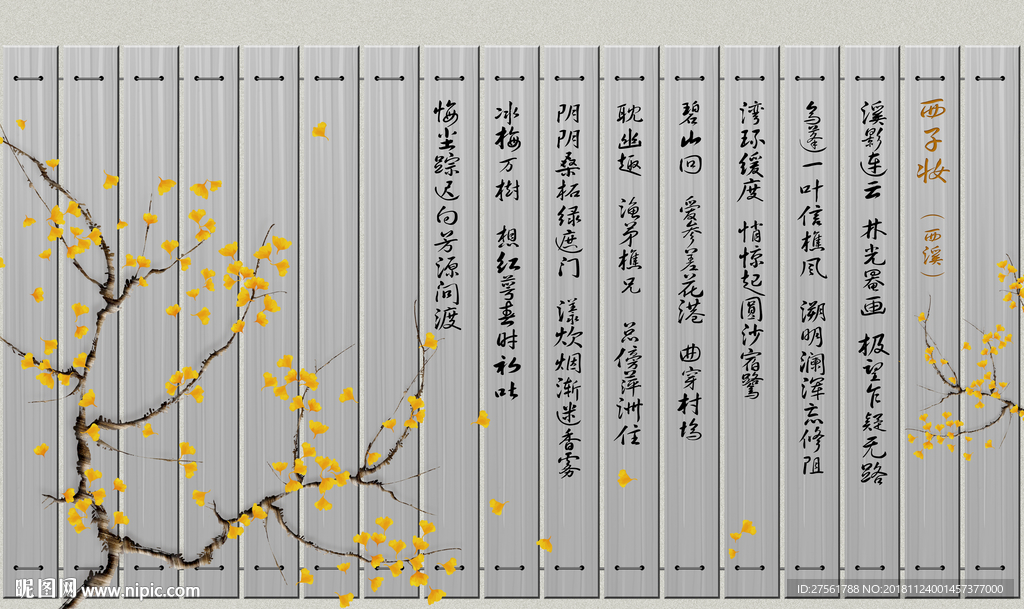 西子妆（西溪）
溪影连云 林光罨画 极望乍疑无路
乌蓬一叶信樵风 溯明澜浑忘修阻
湾环缓度 悄惊起圆沙宿鹭
碧山回 爱参差花港 曲穿村坞
耽幽趣 渔弟樵兄 总傍萍洲住
阴阴桑柘绿遮门 漾炊烟渐迷香雾
冰梅万树 想红萼春时初吐
悔尘踪迟向芳源问渡
昵图网 www.nipic.com
ID:27561788 NO:20181124001457377000